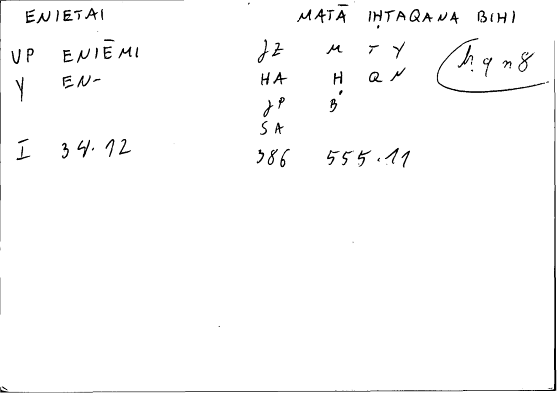 ENIETAI MATĀ IḤTAQANA BIHI
VP ENIĒMI JZ M T Y ḥ q n 8
Y EN- HA Ḥ Q N
JP B
SA
I 34.12 386 555.11